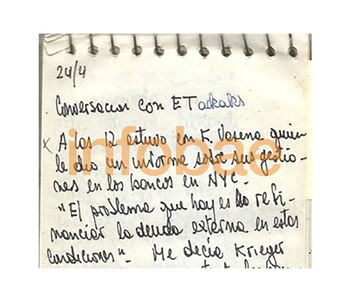 24/4
Conversacion con ET
x A las 12 estuvo con K. Vasena quien
le dio un informe sobre sus gestio-
nes en los bancos en NYC.
"El problema que hay es no refi-
nanciar la deuda externa en estas
condiciones". Me decía Krieger
infobae